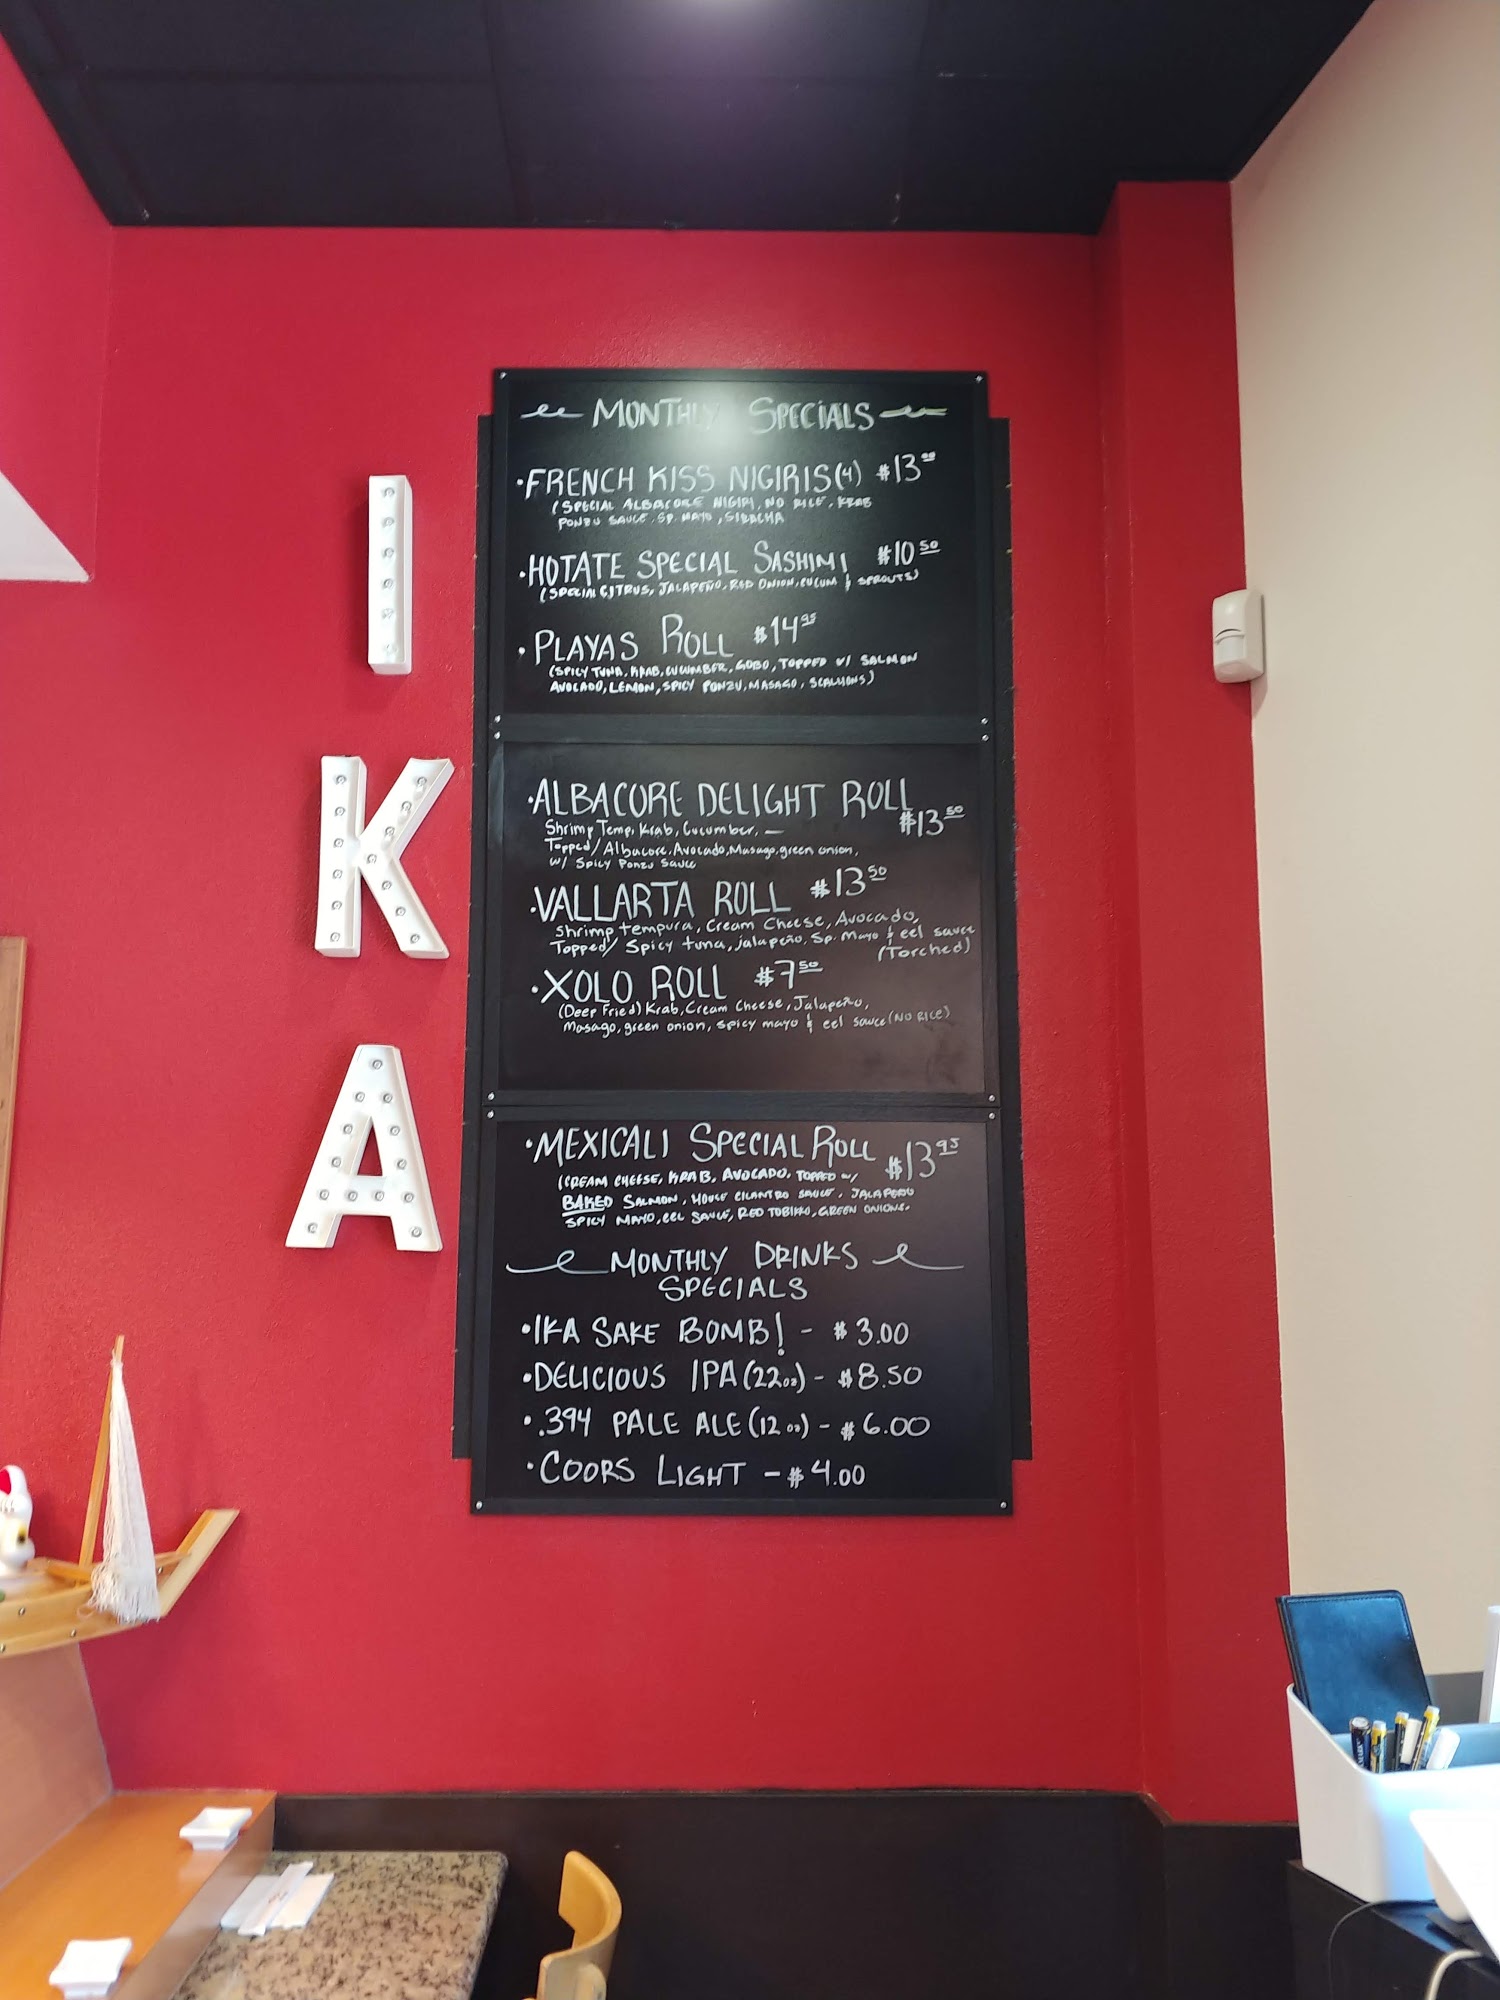 I
K
A
MONTHLY SPECIALS
·FRENCH KISS NIGIRIS(4) $13.00
(SPECIAL ALBACORE NIGIRI, NO RICE, KRAB
PONZU SAUCE, SP. MAYO, SIRACHA
·HOTATE SPECIAL SASHIMI $10 50
(SPECIAL CITRUS, JALAPEÑO, RED ONION, CUCUM & SPROUTS)
·PLAYAS ROLL $14 95
(SPICY TUNA, KRAB, CUCUMBER, GOBO, TOPPED W/ SALMON
AVOCADO, LEMON, SPICY PONZU, MASAGO, SCALLIONS)
·ALBACORE DELIGHT ROLL
$13 50
Shrimp Temp, Krab, Cucumber, —
Topped/ Albacore, Avocado, Masago, green onion,
W/ Spicy Ponzu Sauce
·VALLARTA ROLL $13 50
Shrimp tempura, Cream Cheese, Avocado,
Topped/ Spicy tuna, jalapeño, Sp. Mayo & eel sauce
(Torched)
·XOLO ROLL $7 50
(Deep Fried) Krab, Cream Cheese, Jalapeño,
Masago, green onion, spicy mayo & eel sauce (NO RICE)
·MEXICALI SPECIAL ROLL $13 95
(CREAM CHEESE, KRAB, AVOCADO, TOPPED W/
BAKED SALMON, HOUSE CILANTRO SAUCE, JALAPENO
SPICY MAYO, EEL SAUCE, RED TOBIKO, GREEN ONIONS.
MONTHLY DRINKS
SPECIALS
·IKA SAKE BOMB! - $3.00
·DELICIOUS IPA (22oz) - $8.50
·.394 PALE ALE (12 oz) - $6.00
·COORS LIGHT - $4.00